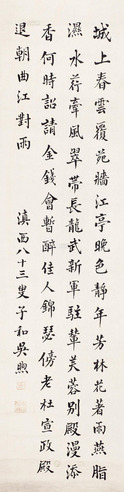 城上春雲覆苑牆江亭晚色靜年芳林花著雨燕脂
濕水荇牽風翠帶長龍武新軍駐輦芙蓉別殿漫添
香何時詔請金錢會暫醉佳人錦瑟傍老杜宣政殿
退朝曲江對雨 滇西八十三叟子和吳煦